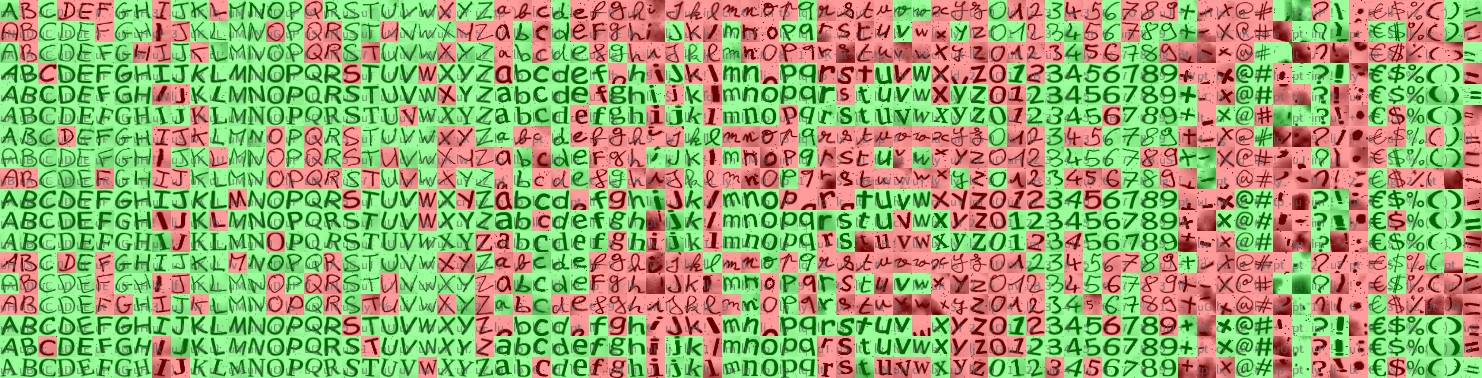 ABCDEFGHIJKLMNOPQRSTUVWXYZabcdefghijklmnopqrstuvwxyz0123456789+-x@#?!€$%()=
ABCDEFGHIJKLMNOPQRSTUVWXYZabcdefghijklmnopqrstuvwxyz0123456789+-x@#?!€$%()=
ABCDEFGHIJKLMNOPQRSTUVWXYZabcdefghijklmnopqrstuvwxyz0123456789+-x@#?!€$%()=
ABCDEFGHIJKLMNOPQRSTUVWXYZabcdefghijklmnopqrstuvwxyz0123456789+-x@#?!€$%()=
ABCDEFGHIJKLMNOPQRSTUVWXYZabcdefghijklmnopqrstuvwxyz0123456789+-x@#?!€$%()=
ABCDEFGHIJKLMNOPQRSTUVWXYZabcdefghijklmnopqrstuvwxyz0123456789+-x@#?!€$%()=
ABCDEFGHIJKLMNOPQRSTUVWXYZabcdefghijklmnopqrstuvwxyz0123456789+-x@#?!€$%()=
ABCDEFGHIJKLMNOPQRSTUVWXYZabcdefghijklmnopqrstuvwxyz0123456789+-x@#?!€$%()=
ABCDEFGHIJKLMNOPQRSTUVWXYZabcdefghijklmnopqrstuvwxyz0123456789+-x@#?!€$%()=
ABCDEFGHIJKLMNOPQRSTUVWXYZabcdefghijklmnopqrstuvwxyz0123456789+-x@#?!€$%()=
ABCDEFGHIJKLMNOPQRSTUVWXYZabcdefghijklmnopqrstuvwxyz0123456789+-x@#?!€$%()=
ABCDEFGHIJKLMNOPQRSTUVWXYZabcdefghijklmnopqrstuvwxyz0123456789+-x@#?!€$%()=
ABCDEFGHIJKLMNOPQRSTUVWXYZabcdefghijklmnopqrstuvwxyz0123456789+-x@#?!€$%()=
ABCDEFGHIJKLMNOPQRSTUVWXYZabcdefghijklmnopqrstuvwxyz0123456789+-x@#?!€$%()=
ABCDEFGHIJKLMNOPQRSTUVWXYZabcdefghijklmnopqrstuvwxyz0123456789+-x@#?!€$%()=
ABCDEFGHIJKLMNOPQRSTUVWXYZabcdefghijklmnopqrstuvwxyz0123456789+-x@#?!€$%()=
ABCDEFGHIJKLMNOPQRSTUVWXYZabcdefghijklmnopqrstuvwxyz0123456789+-x@#?!€$%()=
ABCDEFGHIJKLMNOPQRSTUVWXYZabcdefghijklmnopqrstuvwxyz0123456789+-x@#?!€$%()=